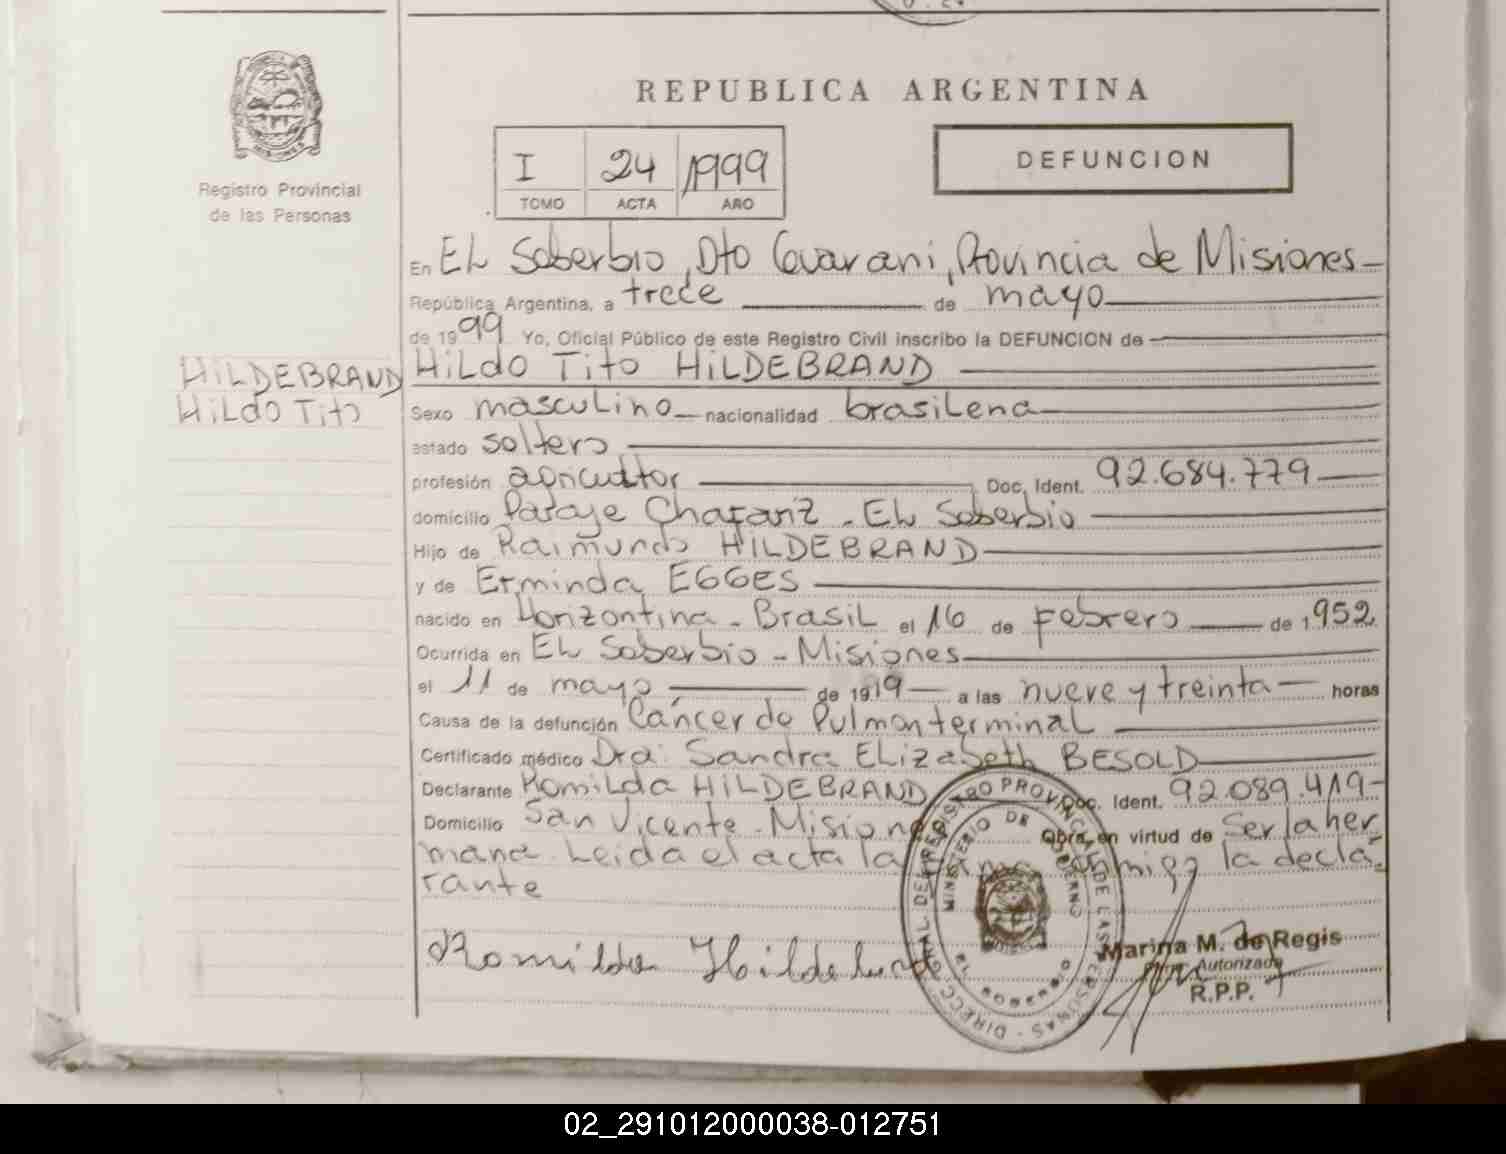 MISIONES
Registro Provincial
de las Personas
REPUBLICA ARGENTINA
I 24 1999
TOMO ACTA AÑO
DEFUNCION
En EL Soberbio, Dto Guarani, Provincia de Misiones
República Argentina, a trece de mayo
de 1999 Yo, Oficial Público de este Registro Civil inscribo la DEFUNCION de
HILDEBRAND
HiLdo Tito
HiLdo Tito HiLDEBRAND
Sexo masculino nacionalidad brasilena
estado soltero
profesión agricultor Doc. Ident. 92.684.779
domicilio Paraje Chafariz - EL Soberbio
Hijo de Raimundo HILDEBRAND
y de Erminda EGGES
nacido en Horizontina - Brasil el 16 de febrero de 1.952
Ocurrida en EL Soberbio - Misiones
el 11 de mayo de 1919 a las nueve y treinta horas
Causa de la defunción Cáncer de Pulmon terminal
Certificado médico Dra: Sandra ELizabeth BESOLD
Declarante Romilda HILDEBRAND Doc. Ident. 92.089.419
Domicilio San Vicente - Misiones Obra en virtud de Ser la her
mana. Leida el acta la conmigo la decla
rante
Romilda Hildebrand
DIRECC. GRAL. DEL REGISTRO PROVINCIAL DE LAS PERSONAS
MINISTERIO DE GOBIERNO
EL SOBERBIO
Marina M. de Regis
Autorizada
R.P.P.
02_291012000038-012751